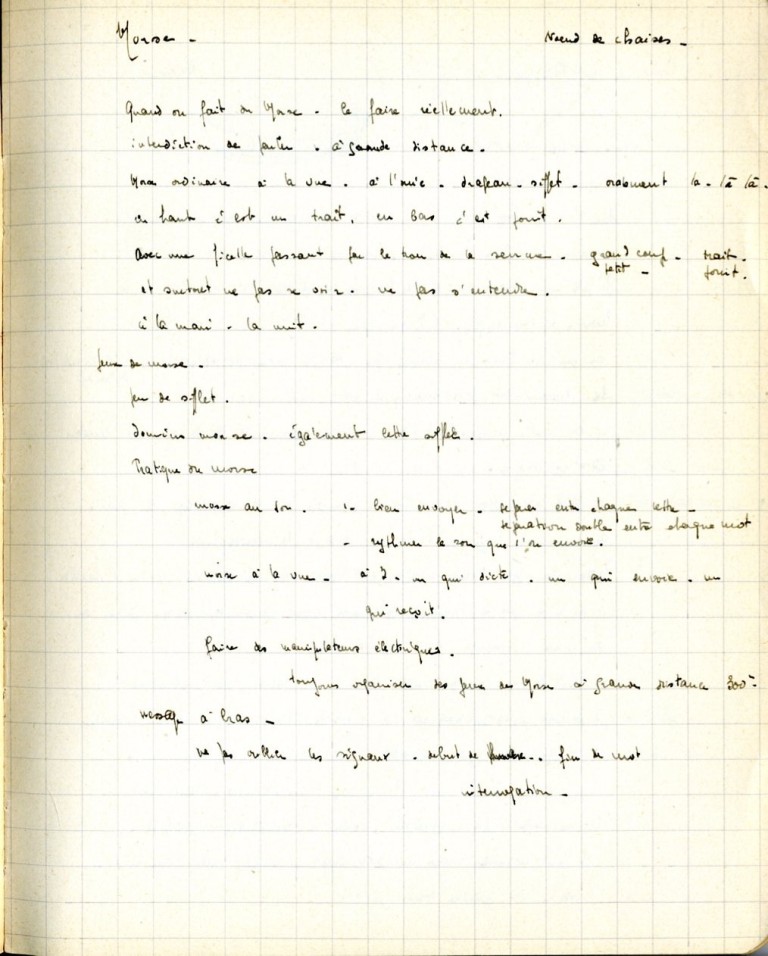 Morse - Nœud de chaises -
Quand on fait du Morse - le faire réellement.
interdiction de parler . à grande distance .
Morse ordinaire à la vue . à l'ouïe . drapeau . sifflet . oralement la . lā lā .
en haut c'est un trait, en bas c'est point .
avec une ficelle passant par le trou de la serrure . grand coup - trait .
petit - point .
et surtout ne pas se voir . ne pas s'entendre .
à la main . la nuit .
Jeux de morse .
jeu de sifflet .
dominos morse . également lettre
Pratique du morse
morse au son . bien envoyer . séparer entre chaque lettre -
séparation double entre chaque mot
- rythmer le son que l'on envoie .
morse à la vue - à 3 . un qui dicte . un qui envoie . un
qui reçoit .
faire des manipulateurs électriques .
toujours organiser des jeux de Morse à grande distance 300
message à bras -
ne pas oublier les signaux . début de . fin de mot
interrogation -